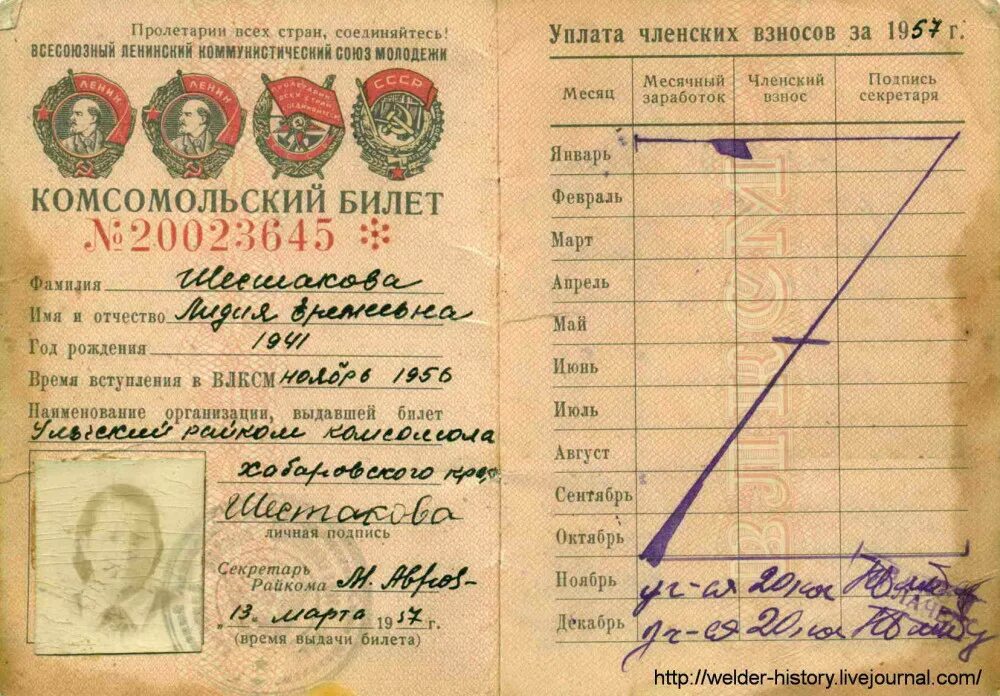 Пролетарии всех стран, соединяйтесь!
ВСЕСОЮЗНЫЙ ЛЕНИНСКИЙ КОММУНИСТИЧЕСКИЙ СОЮЗ МОЛОДЕЖИ
ЛЕНИН ЛЕНИН ПРОЛЕТАРИИ ВСЕХ СТРАН СОЕДИНЯЙТЕСЬ СССР
КОМСОМОЛЬСКИЙ БИЛЕТ
№ 20023645
Фамилия Шестакова
Имя и отчество Лидия Еремеевна
Год рождения 1941
Время вступления в ВЛКСМ ноябрь 1956
Наименование организации, выдавшей билет
Ульчский райком комсомола
Хабаровского края
Шестакова
личная подпись
Секретарь
Райкома М.
„13“ марта 1957 г.
(время выдачи билета)
Уплата членских взносов за 1957 г.
Месяц Месячный заработок Членский взнос Подпись секретаря
Январь
Февраль
Март
Апрель
Май
Июнь
Июль
Август
Сентябрь
Октябрь
Ноябрь уч-ся 20 коп
Декабрь уч-ся 20 коп
ВЛКСМ
http://welder-history.livejournal.com/